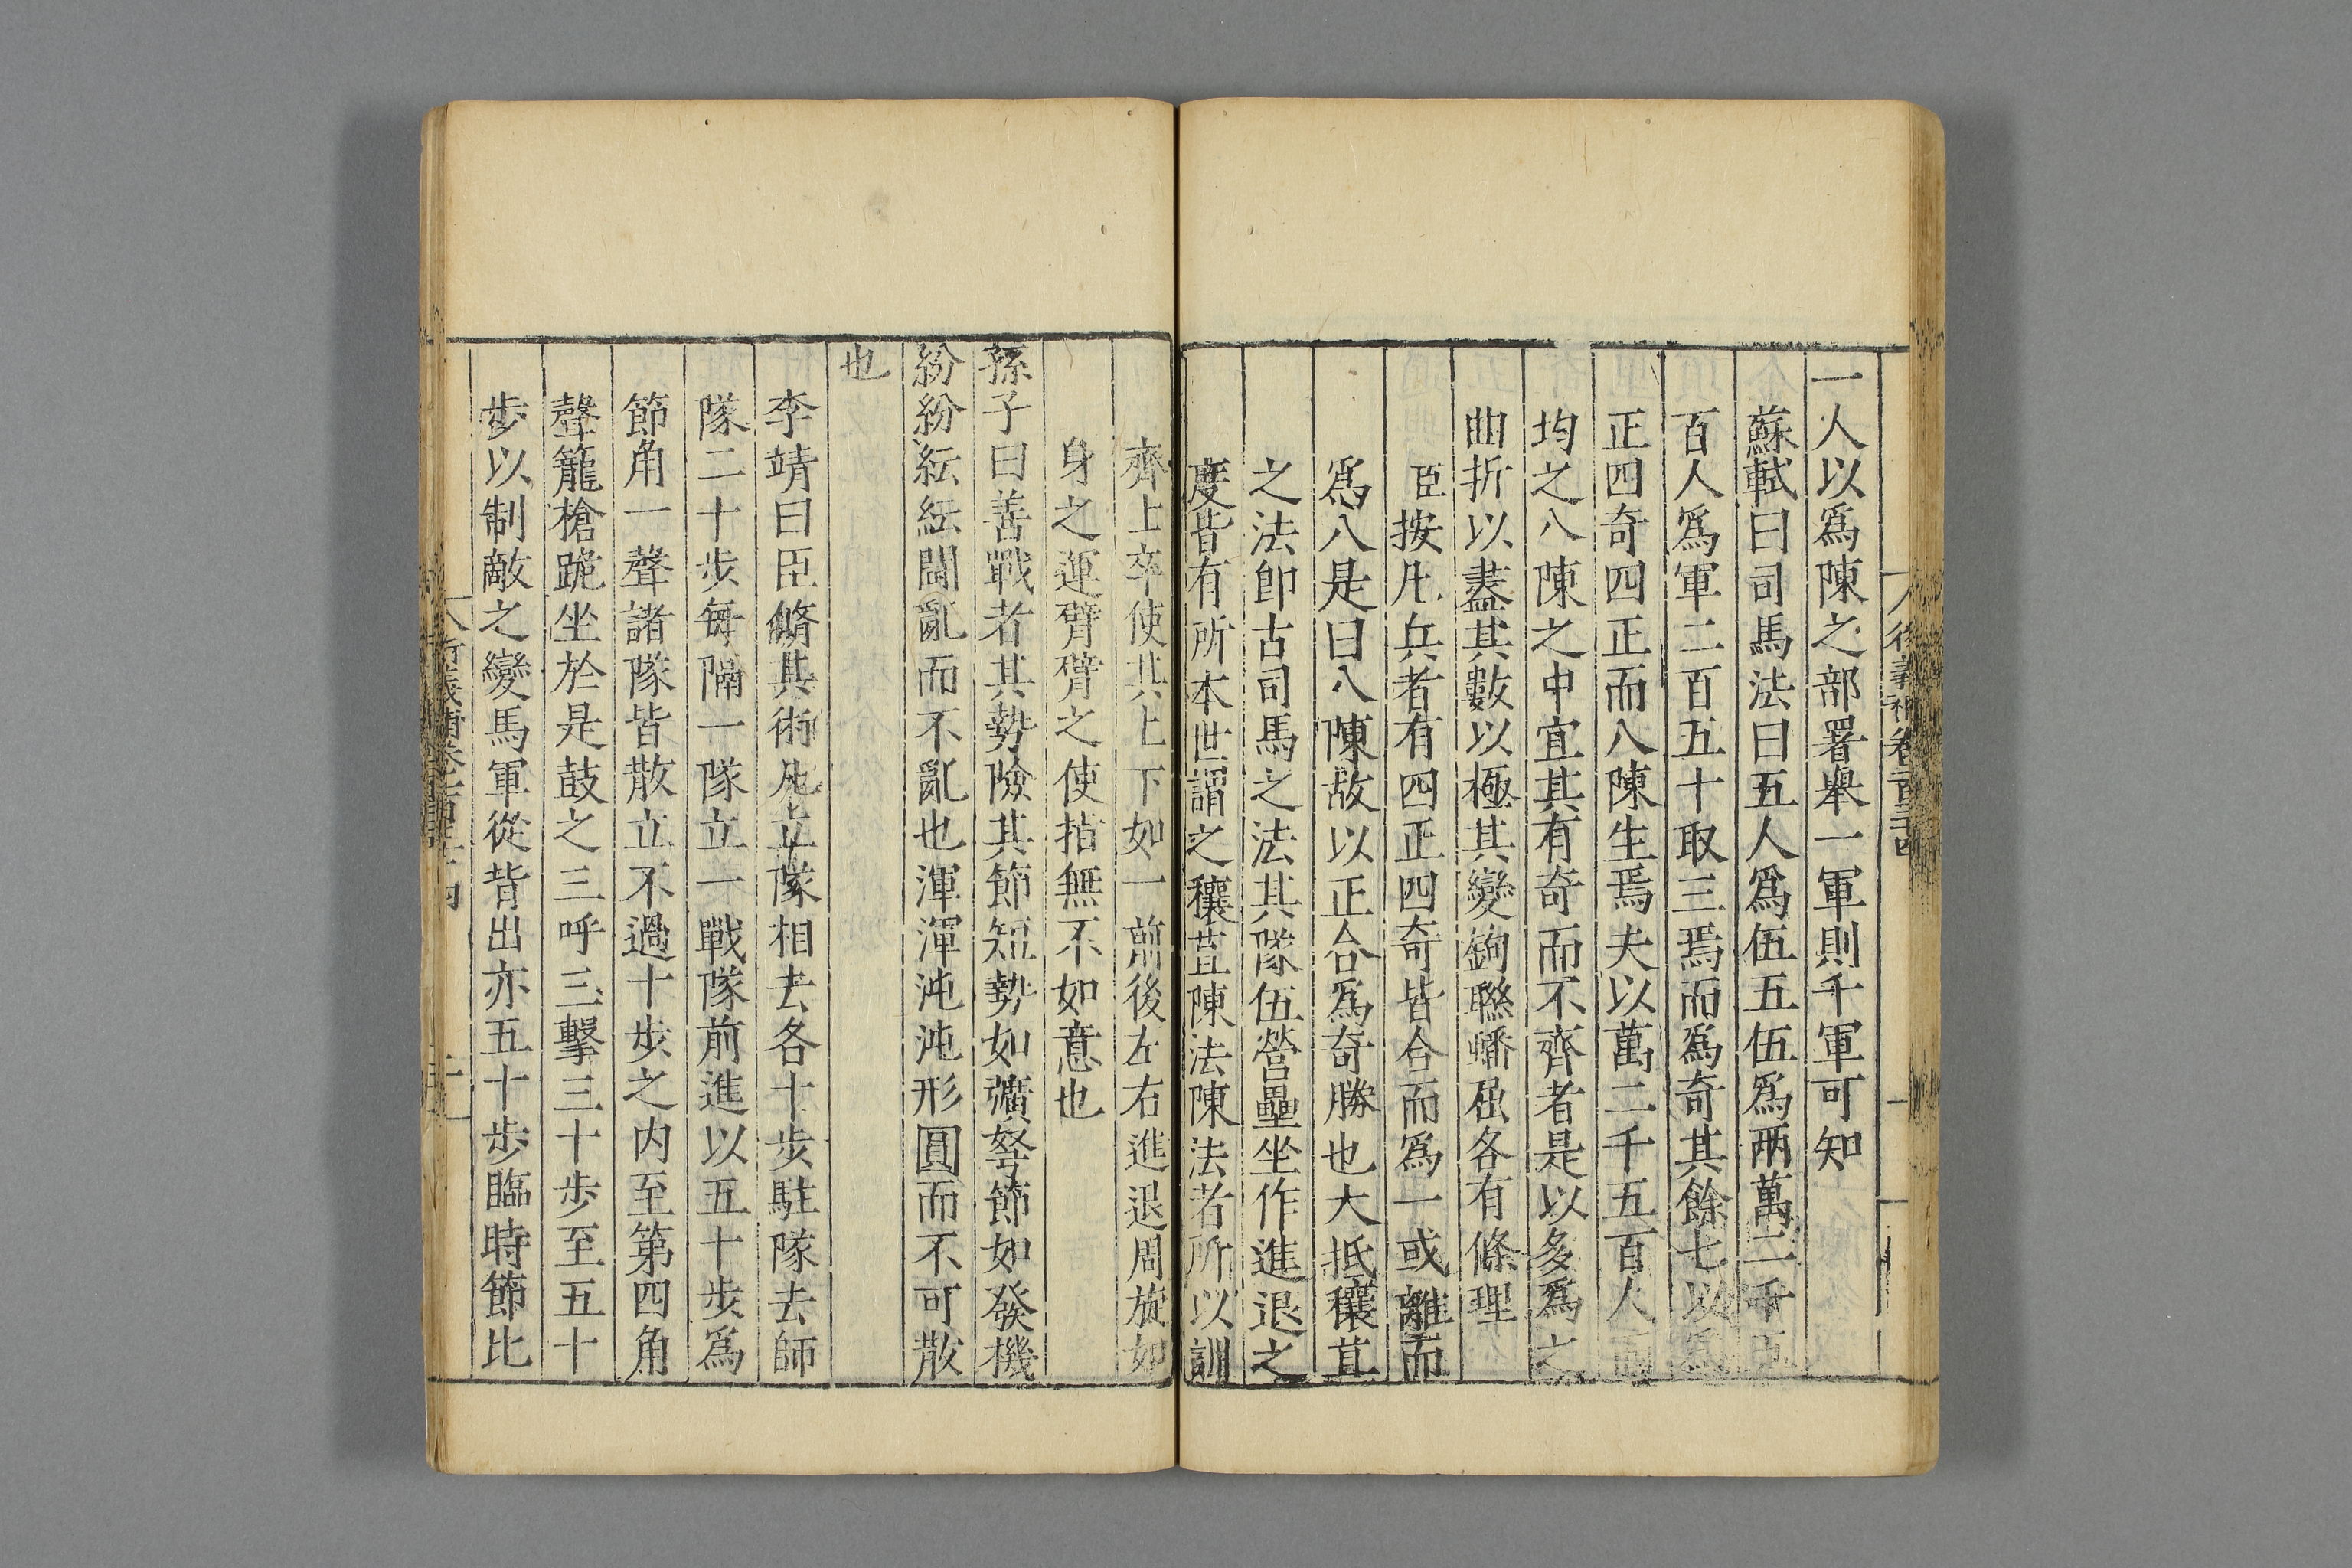 一人以爲陳之部署舉一軍則千軍可知
蘇軾曰司馬法曰五人爲伍五伍爲兩萬二千五
百人爲軍二百五十取三焉而爲奇其餘七以爲
正四奇四正而八陳生焉夫以萬二千五百人而
均之八陳之中宜其有奇而不齊者是以多爲之
曲折以蓋其數以極其變鉤聯蟠屈各有條理
臣按凡兵者有四正四奇皆合而爲一或離而
爲八是曰八陳故以正合爲奇勝也大抵穰苴
之法卽古司馬之法其隊伍營壘坐作進退之
度皆有所本世謂之穰苴陳法陳法者所以訓
齊上卒使其上下如一前後左右進退周旋如
身之運臂臂之使指無不如意也
孫子曰善戰者其勢險其節短勢如彍弩節如發機
紛紛紜紜鬭亂而不亂也渾渾沌沌形圓而不可散
也
李靖曰臣脩其術凡立隊相去各十步駐隊去師
隊二十步每隔一隊立一戰隊前進以五十步爲
節角一聲諸隊皆散立不過十步之内至第四角
聲籠槍跪坐於是鼓之三呼三擊三十步至五十
步以制敵之變馬軍從背出亦五十步臨時節比